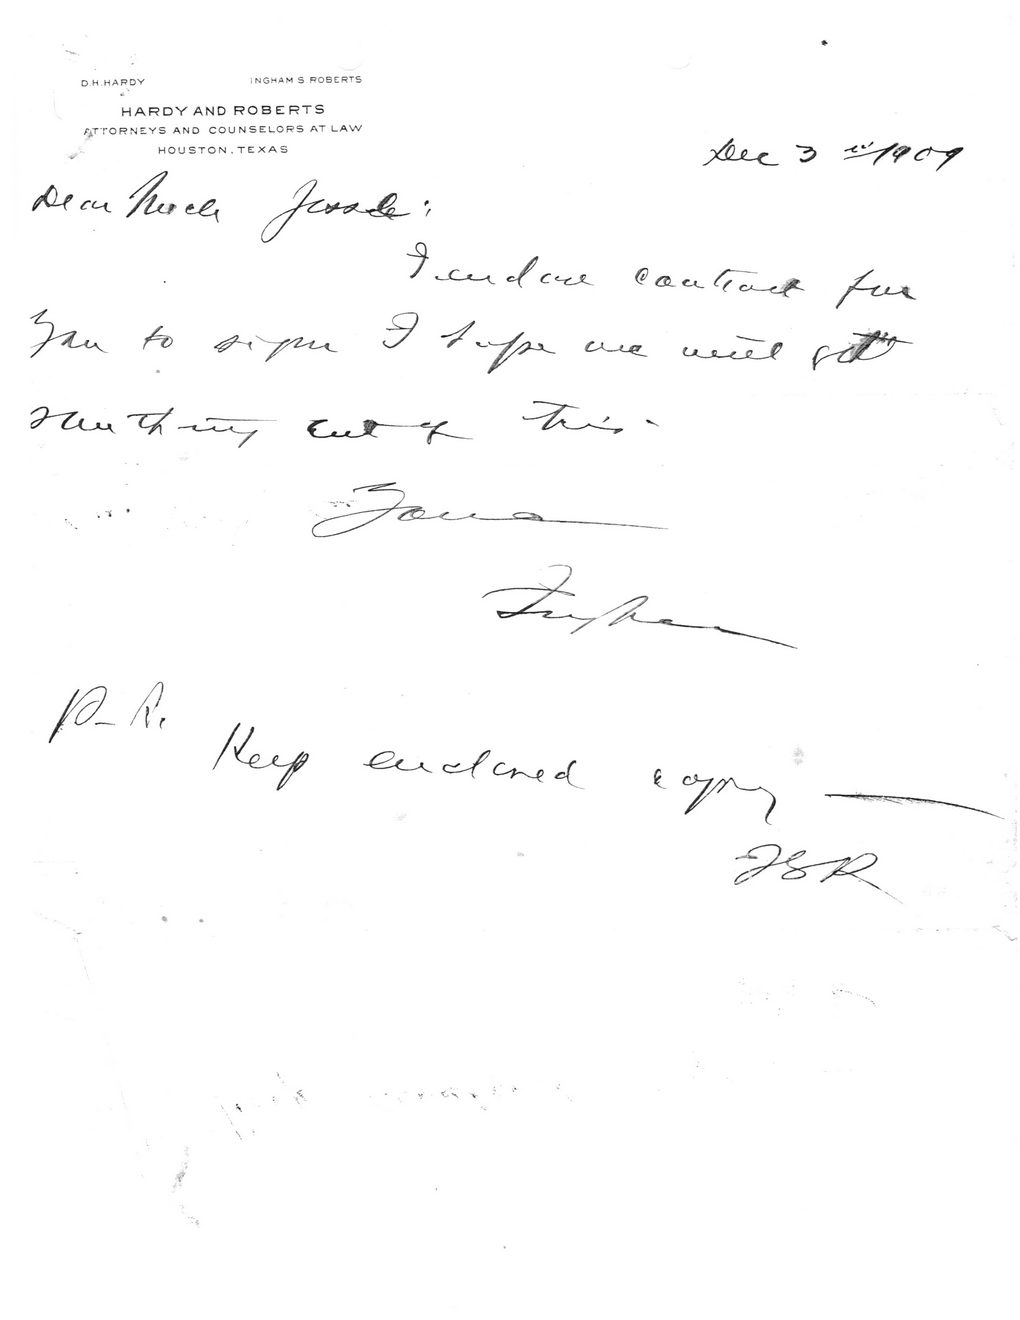 D.H.HARDY INGHAM S ROBERTS
HARDY AND ROBERTS
ATTORNEYS AND COUNSELORS AT LAW
HOUSTON, TEXAS
Dec 3 1909
Dear Uncle Jesse:
I enclose contract for
you to sign I hope we will get
something out of this.
Yours
Ingham
P.S.
Keep enclosed copy
ISR